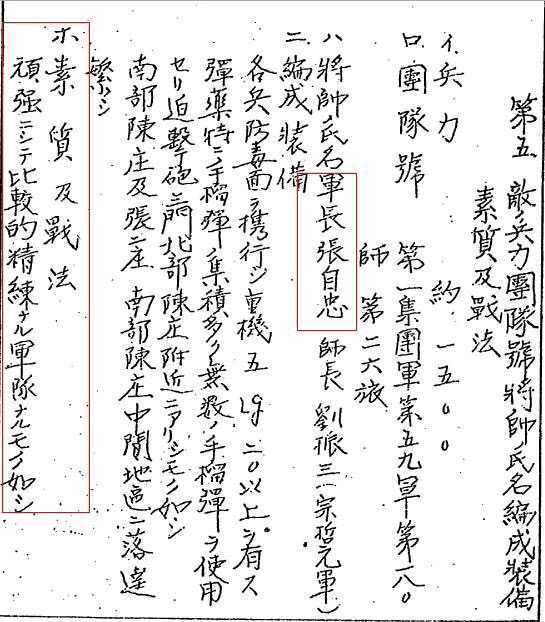 第五 敵ノ兵力團隊號將帥ノ氏名編成裝備
素質及戰法
イ、兵力 約一五〇〇
ロ、團隊號 第一集團軍第五九軍第一八〇
師 第二六旅
ハ、將帥ノ氏名 軍長張自忠 師長 劉振三(宗哲元軍)
ニ、編成裝備
各兵防毒面ヲ携行シ重機五 LG 二〇以上ヲ有ス
彈藥特ニ手榴彈ノ集積多ク無數ノ手榴彈ヲ使用
セリ迫擊砲三門北部陳庄附近ニアリシモノ如シ
南部陳庄及張二庄 南部陳庄中間地區ニ落達
繁シ
ホ、素質及戰法
頑强ニシテ比較的精練ナル軍隊ナルモノ如シ